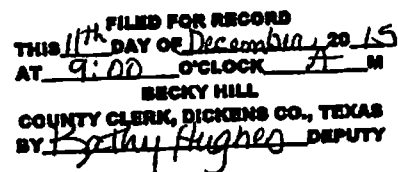 FILED FOR RECORD
THIS 11th DAY OF December, 20 15
AT 9:00 O'CLOCK A M
BECKY HILL
COUNTY CLERK, DICKENS CO., TEXAS
BY Hughes DEPUTY